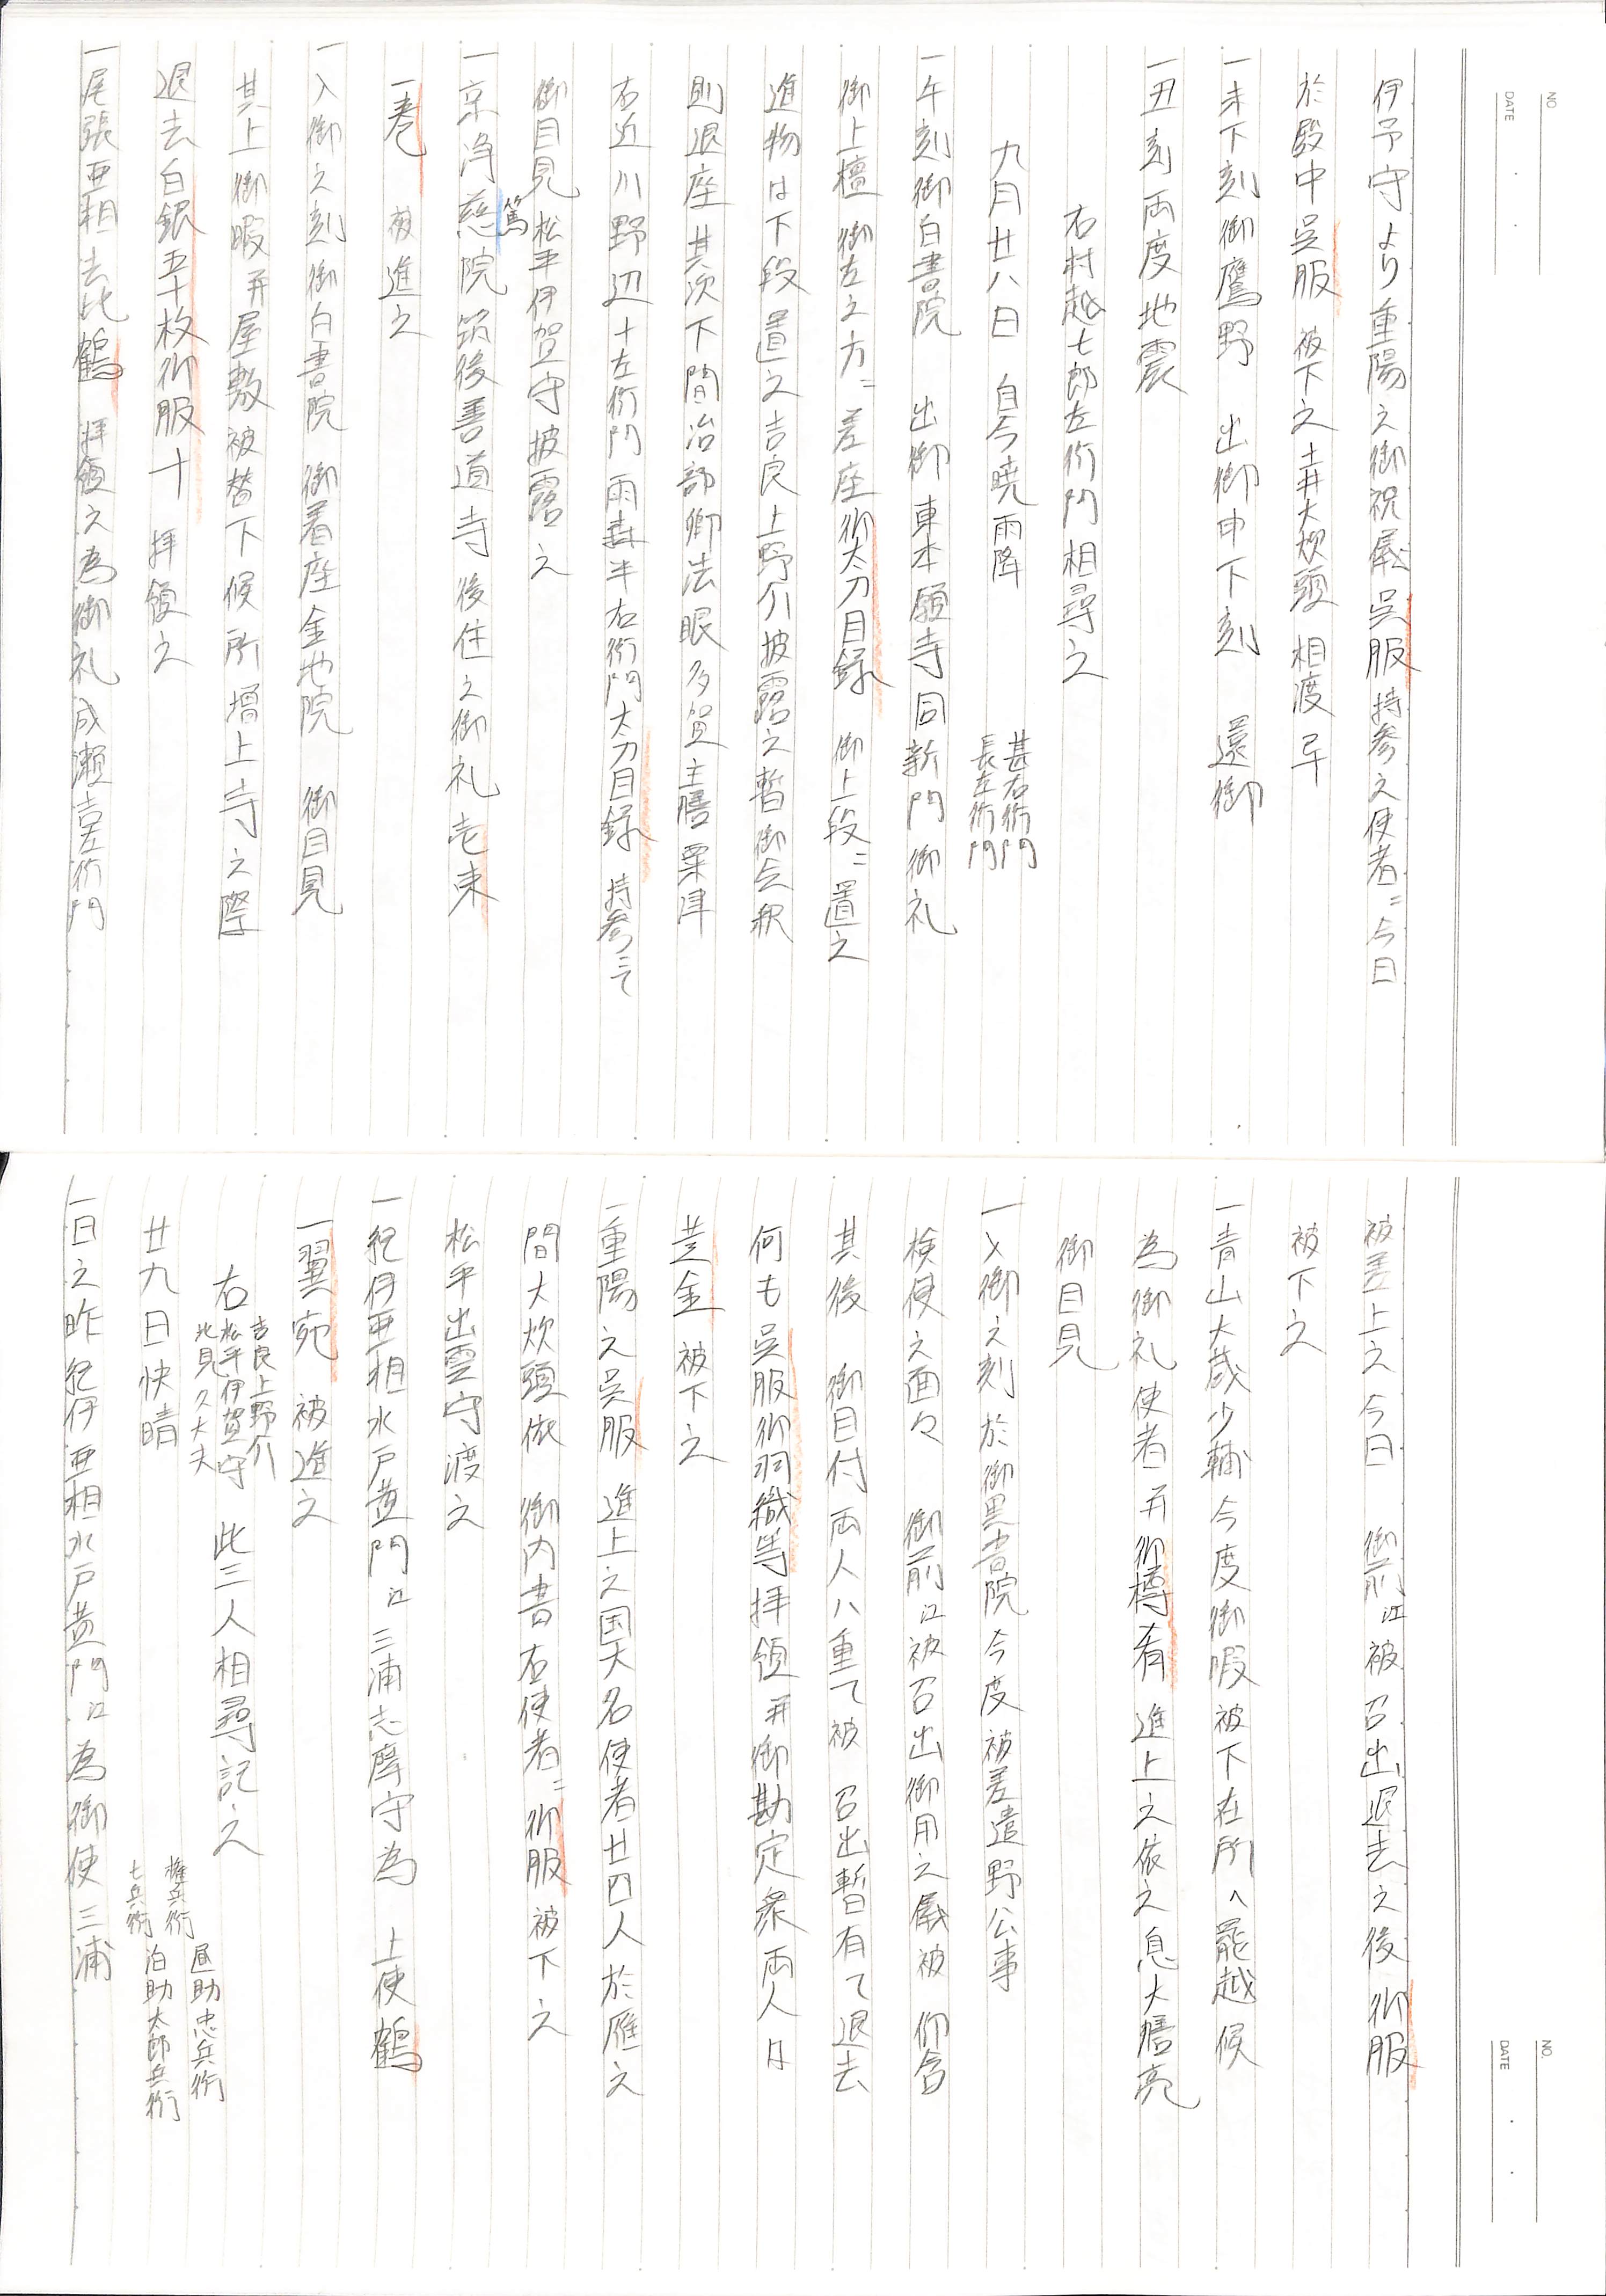 NO.
DATE
伊予守より重陽之御祝儀呉服持参之使者ニ今日
於殿中呉服被下之土井大炊頭相渡早
一未下刻御鷹野　出御申下刻　還御
一丑刻両度地震
右村越七郎左衛門相尋之
九月廿八日　自今暁雨降　甚右衛門
長左衛門
一午刻御白書院　出御東本願寺同新門御礼
御上檀　御左之方ニ着座御太刀目録　御上段ニ置之
進物は下段置之吉良上野介披露之暫御会釈
則退座其次下間治部卿法眼多賀主膳粟津
右近川野辺十左衛門雨森半右衛門太刀目録持参ニて
御目見松平伊賀守披露之
篤
一京浄慈院筑後善道寺後住之御礼壱束
一巻　被進之
一入御之刻御白書院　御着座金地院　御目見
其上御暇并屋敷被替下候所増上寺之際
退去白銀五十枚御服十　拝領之
一尾張亜相去比鶴　拝領之為御礼成瀬吉左衛門
NO.
DATE
被差上之今日　御前江被召出退去之後御服
被下之
一青山大蔵少輔今度御暇被下在所へ罷越候
為御礼使者并御樽肴進上之依之息大膳亮
御目見
一入御之刻於御黒書院今度被差遣野公事
検使之面々　御前江被召出御用之儀被　仰含
其後　御目付両人ハ重て被　召出暫有て退去
何も呉服御羽織等拝領并御勘定衆両人は
黄金被下之
一重陽之呉服　進上之国大名使者廿四人於雁之
間大炊頭依　御内書右使者ニ御服被下之
松平出雲守渡之
一紀伊亜相水戸黄門江三浦志摩守為　上使鶴
一翼宛　被進之
右　吉良上野介
松平伊賀守
北見久大夫　此三人相尋記之
廿九日快晴　権兵衛　昼助忠兵衛
七兵衛　泊助太郎兵衛
一日之昨紀伊亜相水戸黄門江為御使三浦